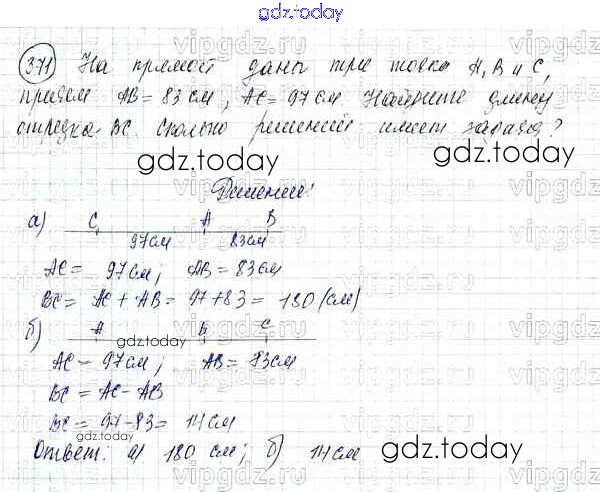 gdz.today
371 На прямой даны три точки A, B и C,
причем AB = 83 см, AC = 97 см. Найдите длину
отрезка BC. Сколько решений имеет задача?
gdz.today gdz.today
Решение:
а) C A B
97см 83см
AC = 97 см; AB = 83 см
BC = AC + AB = 97 + 83 = 180 (см)
gdz.today
б) A B C
AC = 97 см; AB = 83 см
BC = AC - AB
BC = 97 - 83 = 14 см
gdz.today
Ответ: а) 180 см; б) 14 см
gdz.today